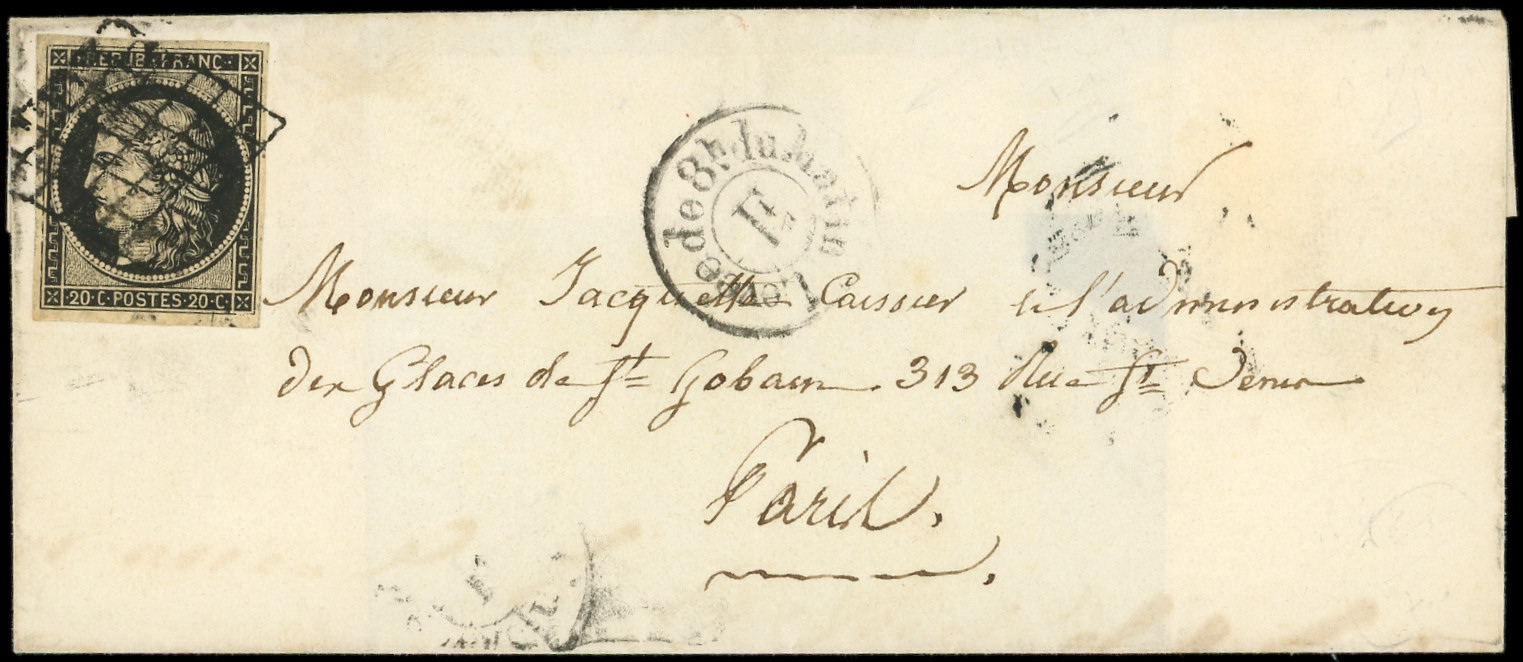 REPUB. FRANC.
20 · C · POSTES · 20 · C ·
Levée de 8h. du matin
E
Monsieur
Monsieur Jacquette Caissier de l'administration
des Glaces de St Gobain 313 Rue St Denis
Paris.